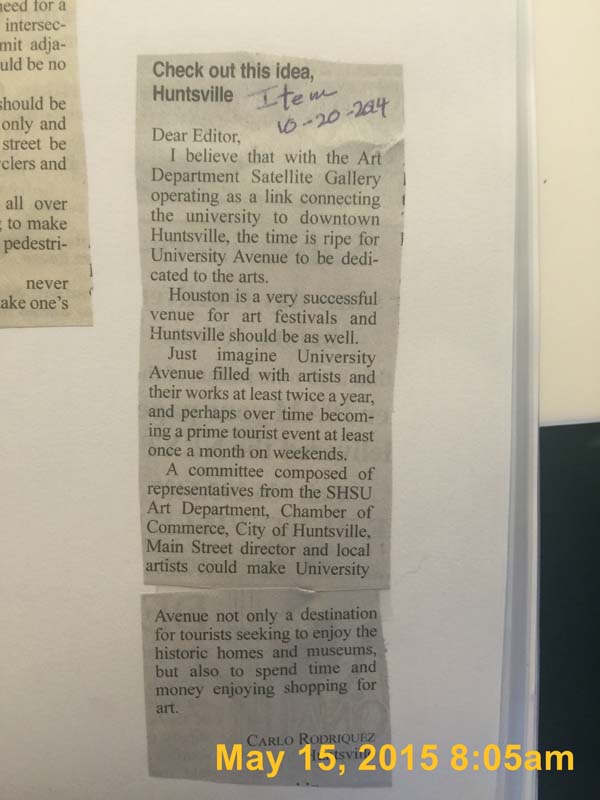 need for a
intersec-
mit adja-
uld be no
should be
only and
street be
clers and
all over
to make
pedestri-
never
ake one's
Check out this idea,
Huntsville
Item
10-20-2014
Dear Editor,
I believe that with the Art
Department Satellite Gallery
operating as a link connecting
the university to downtown
Huntsville, the time is ripe for
University Avenue to be dedi-
cated to the arts.
Houston is a very successful
venue for art festivals and
Huntsville should be as well.
Just imagine University
Avenue filled with artists and
their works at least twice a year,
and perhaps over time becom-
ing a prime tourist event at least
once a month on weekends.
A committee composed of
representatives from the SHSU
Art Department, Chamber of
Commerce, City of Huntsville,
Main Street director and local
artists could make University
Avenue not only a destination
for tourists seeking to enjoy the
historic homes and museums,
but also to spend time and
money enjoying shopping for
art.
CARLO RODRIQUEZ
Huntsville
May 15, 2015 8:05am